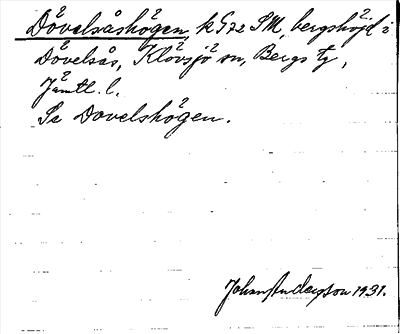 Dövelsåshögen, k 972 SM, bergshöjd i
Dövelsås, Klövsjö sn, Bergs tg,
Jämtl. l.
Se Dovelshögen.
Johan Anderzson 1931.